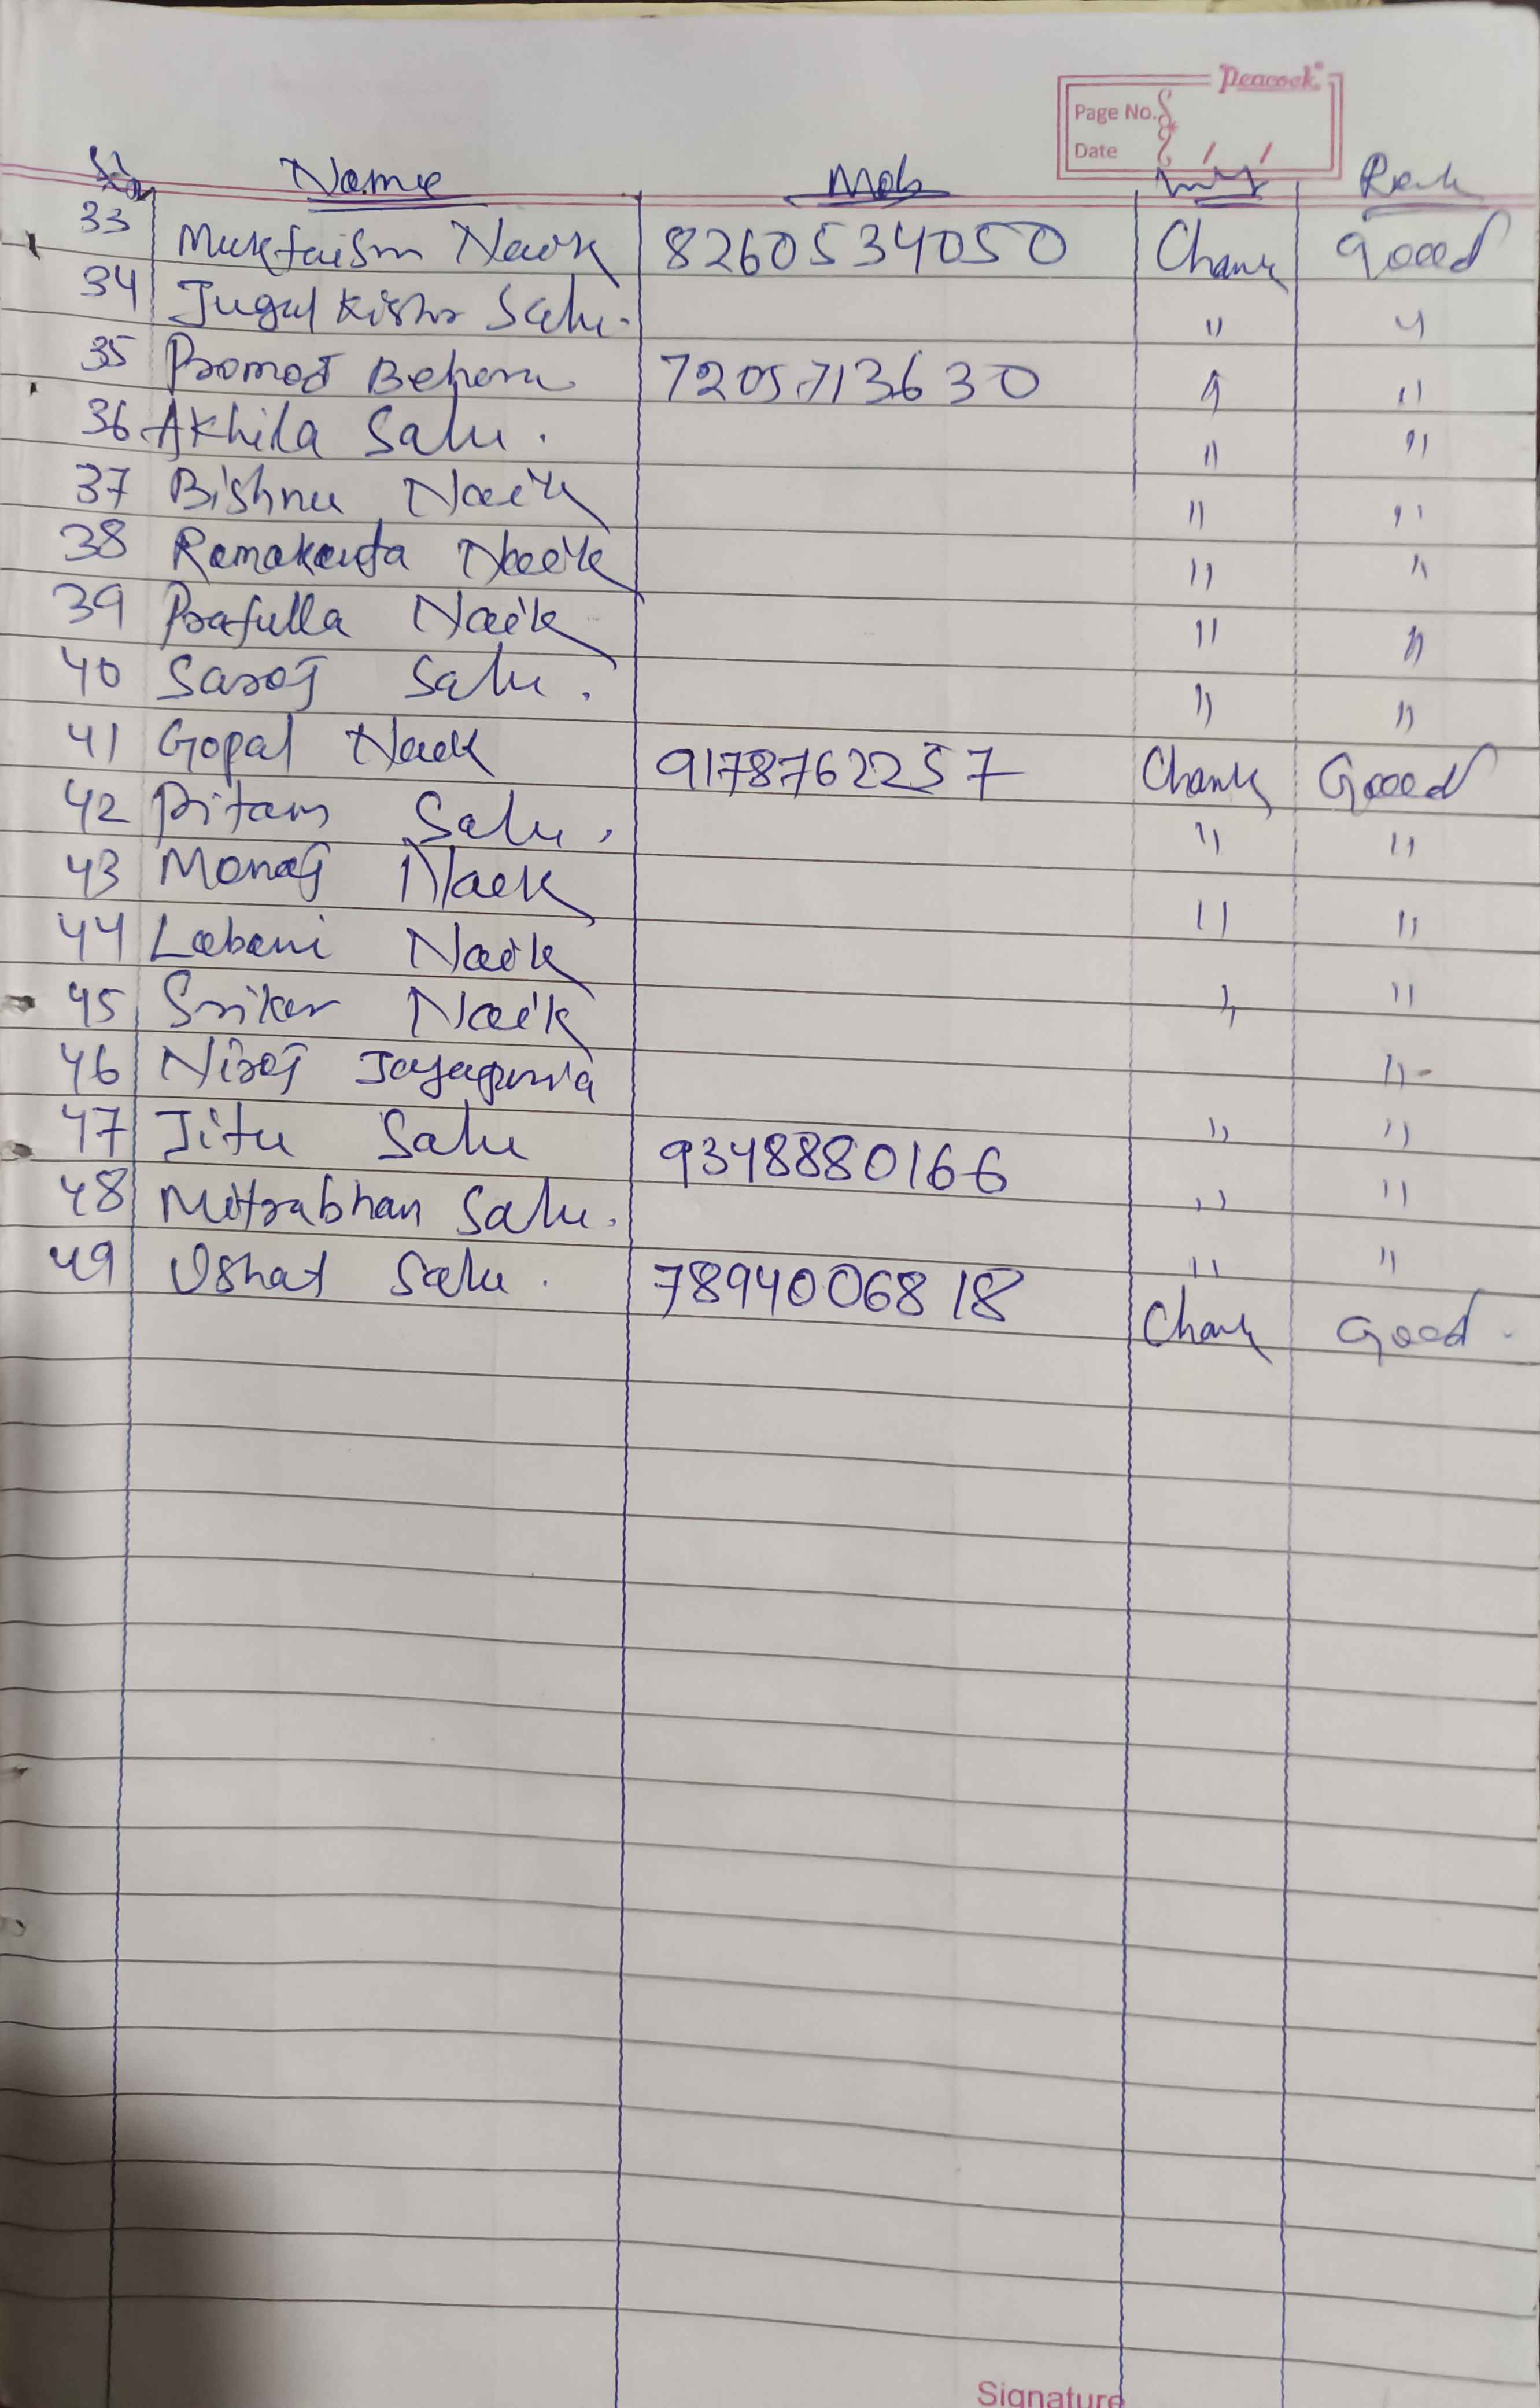 Peacock
Page No.
Date / /
Sl No Name Mob Rank
33 Naik 8260534050 Chank Good
34 Jugal Kishor Sahu. " "
35 Pramod Behera 7205713630 " "
36 Akhila Sahu. " "
37 Bishnu Naik " "
38 Ramakanta Naik " "
39 Prafulla Naik " "
40 Saroj Sahu. " "
41 Gopal Naik 9178762257 Chank Good
42 Pritam Sahu. " "
43 Manoj Naik " "
44 Labani Naik " "
45 Sriker Naik "
46 Niroj " "
47 Jitu Sahu 9348880166 " "
48 Mitrabhan Sahu. " "
49 Sahu. 7894006818 Chank Good.
Signature